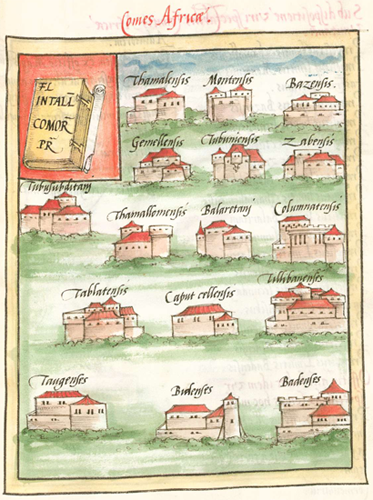 Comes Africæ.
FL
INTALL
COMOR
PR
Thamalensis Montensis Bazensis.
Gemellensis Tubuniensis Zabensis.
Tubusubditani
Thamallomensis Balaretani Columnatensis
Tablatensis Caput cellensis Tillibanenses
Taugenses Bidenses Badenses